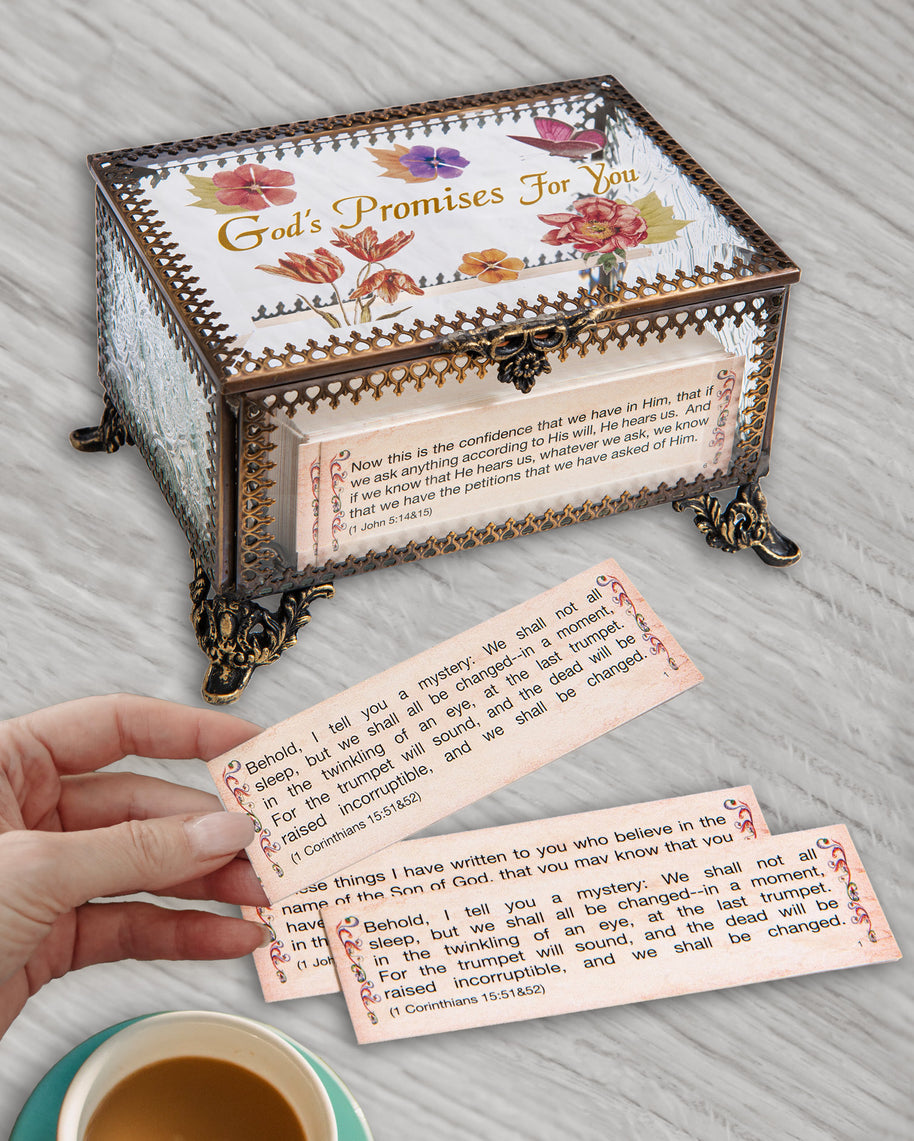 God's Promises For You
Now this is the confidence that we have in Him, that if
we ask anything according to His will, He hears us. And
if we know that He hears us, whatever we ask, we know
that we have the petitions that we have asked of Him.
(1 John 5:14&15)
6
Behold, I tell you a mystery: We shall not all
sleep, but we shall all be changed--in a moment,
in the twinkling of an eye, at the last trumpet.
For the trumpet will sound, and the dead will be
raised incorruptible, and we shall be changed.
(1 Corinthians 15:51&52)
1
things I have written to you who believe in the
name of the Son of God, that you may know that you
have
in th
(1 Joh
Behold, I tell you a mystery: We shall not all
sleep, but we shall all be changed--in a moment,
in the twinkling of an eye, at the last trumpet.
For the trumpet will sound, and the dead will be
raised incorruptible, and we shall be changed.
(1 Corinthians 15:51&52)
1